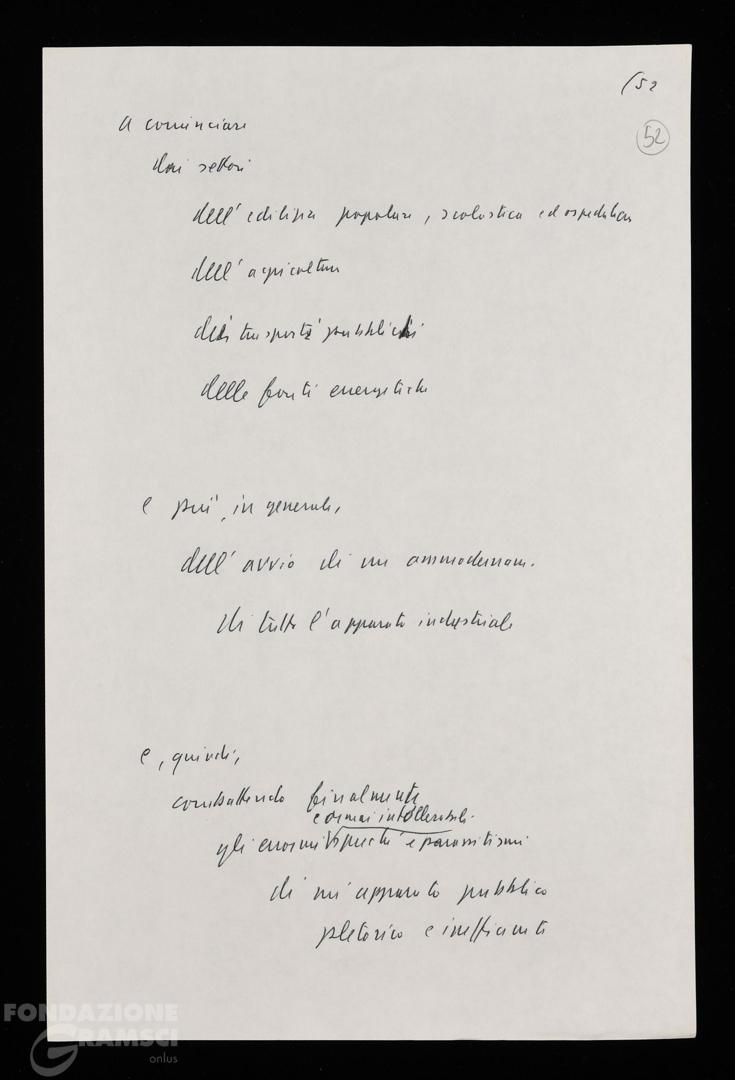 (52
52
A cominciare
dai settori
dell'edilizia popolare, scolastica ed ospedaliera
dell'agricoltura
dei trasporti pubblici
delle fonti energetiche
e più, in generale,
dell'avvio di un ammodernam.
di tutto l'apparato industriale
e, quindi,
combattendo finalmente
e ormai intollerabili
gli enormi sprechi e parassitismi
di un apparato pubblico
pletorico e inefficiente
FONDAZIONE
GRAMSCI
onlus